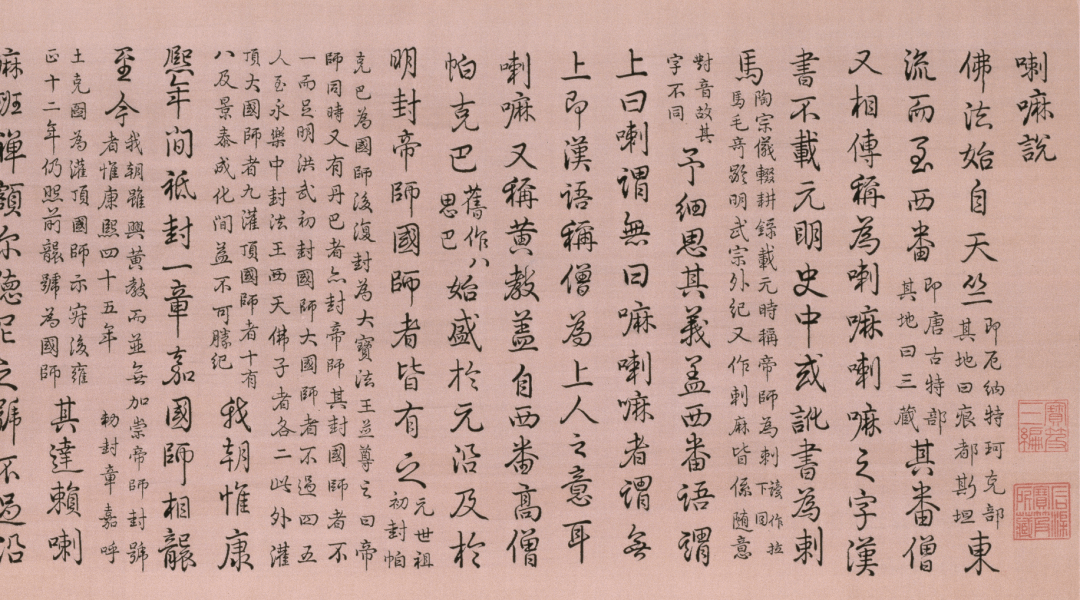 喇嘛說
佛法始自天竺
即厄納特珂克部
其地曰痕都斯坦
東
流而至西番
即唐古特部
其地曰三藏
其番僧
又相傳稱為喇嘛喇嘛之字漢
書不載元明史中或訛書為剌
馬
陶宗儀輟耕錄載元時稱帝師為剌
讀作拉
下同
馬毛奇齡明武宗外紀又作剌麻皆係隨意
對音故其
字不同
予細思其義葢西番語謂
上曰喇謂無曰嘛喇嘛者謂無
上即漢語稱僧為上人之意耳
喇嘛又稱黃教葢自西番高僧
帕克巴
舊作八
思巴
始盛於元沿及於
明封帝師國師者皆有之
元世祖
初封帕
克巴為國師後復封為大寶法王並尊之曰帝
師同時又有丹巴者亦封帝師其封國師者不
一而足明洪武初封國師大國師者不過四五
人至永樂中封法王西天佛子者各二此外灌
頂大國師者九灌頂國師者十有
八及景泰成化間益不可勝紀
我朝惟康
熙年間祗封一章嘉國師相襲
至今
我朝雖興黃教而並無加崇帝師封號
者惟康熙四十五年 勅封章嘉呼
土克圖為灌頂國師示寂後雍
正十二年仍照前襲號為國師
其達賴喇
嘛班禪額尔德尼之號不過沿
寶笈三編
石渠寶笈所藏